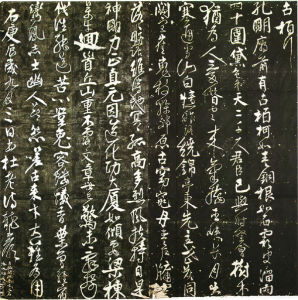 古柏行
孔明廟前有古柏柯如青銅根如石霜皮溜雨
四十圍黛色參天二千尺君臣已與時際會樹木
猶為人愛惜雲來氣接巫峽長月出
寒通雪山白憶昨路繞錦亭東先主武侯
同閟宮崔嵬枝幹郊原古窈窕丹青戶牖空
落落盤踞雖得地冥冥孤高多烈風扶持自是
神明力正直元因造化功大廈如傾要梁棟
萬牛迴首丘山重不露文章世已驚未辭剪
伐誰能送苦心豈免容螻蟻香葉終經宿
鸞鳳志士幽人莫怨嗟古來材大難為用
右庚辰歲九月三日書杜老詩